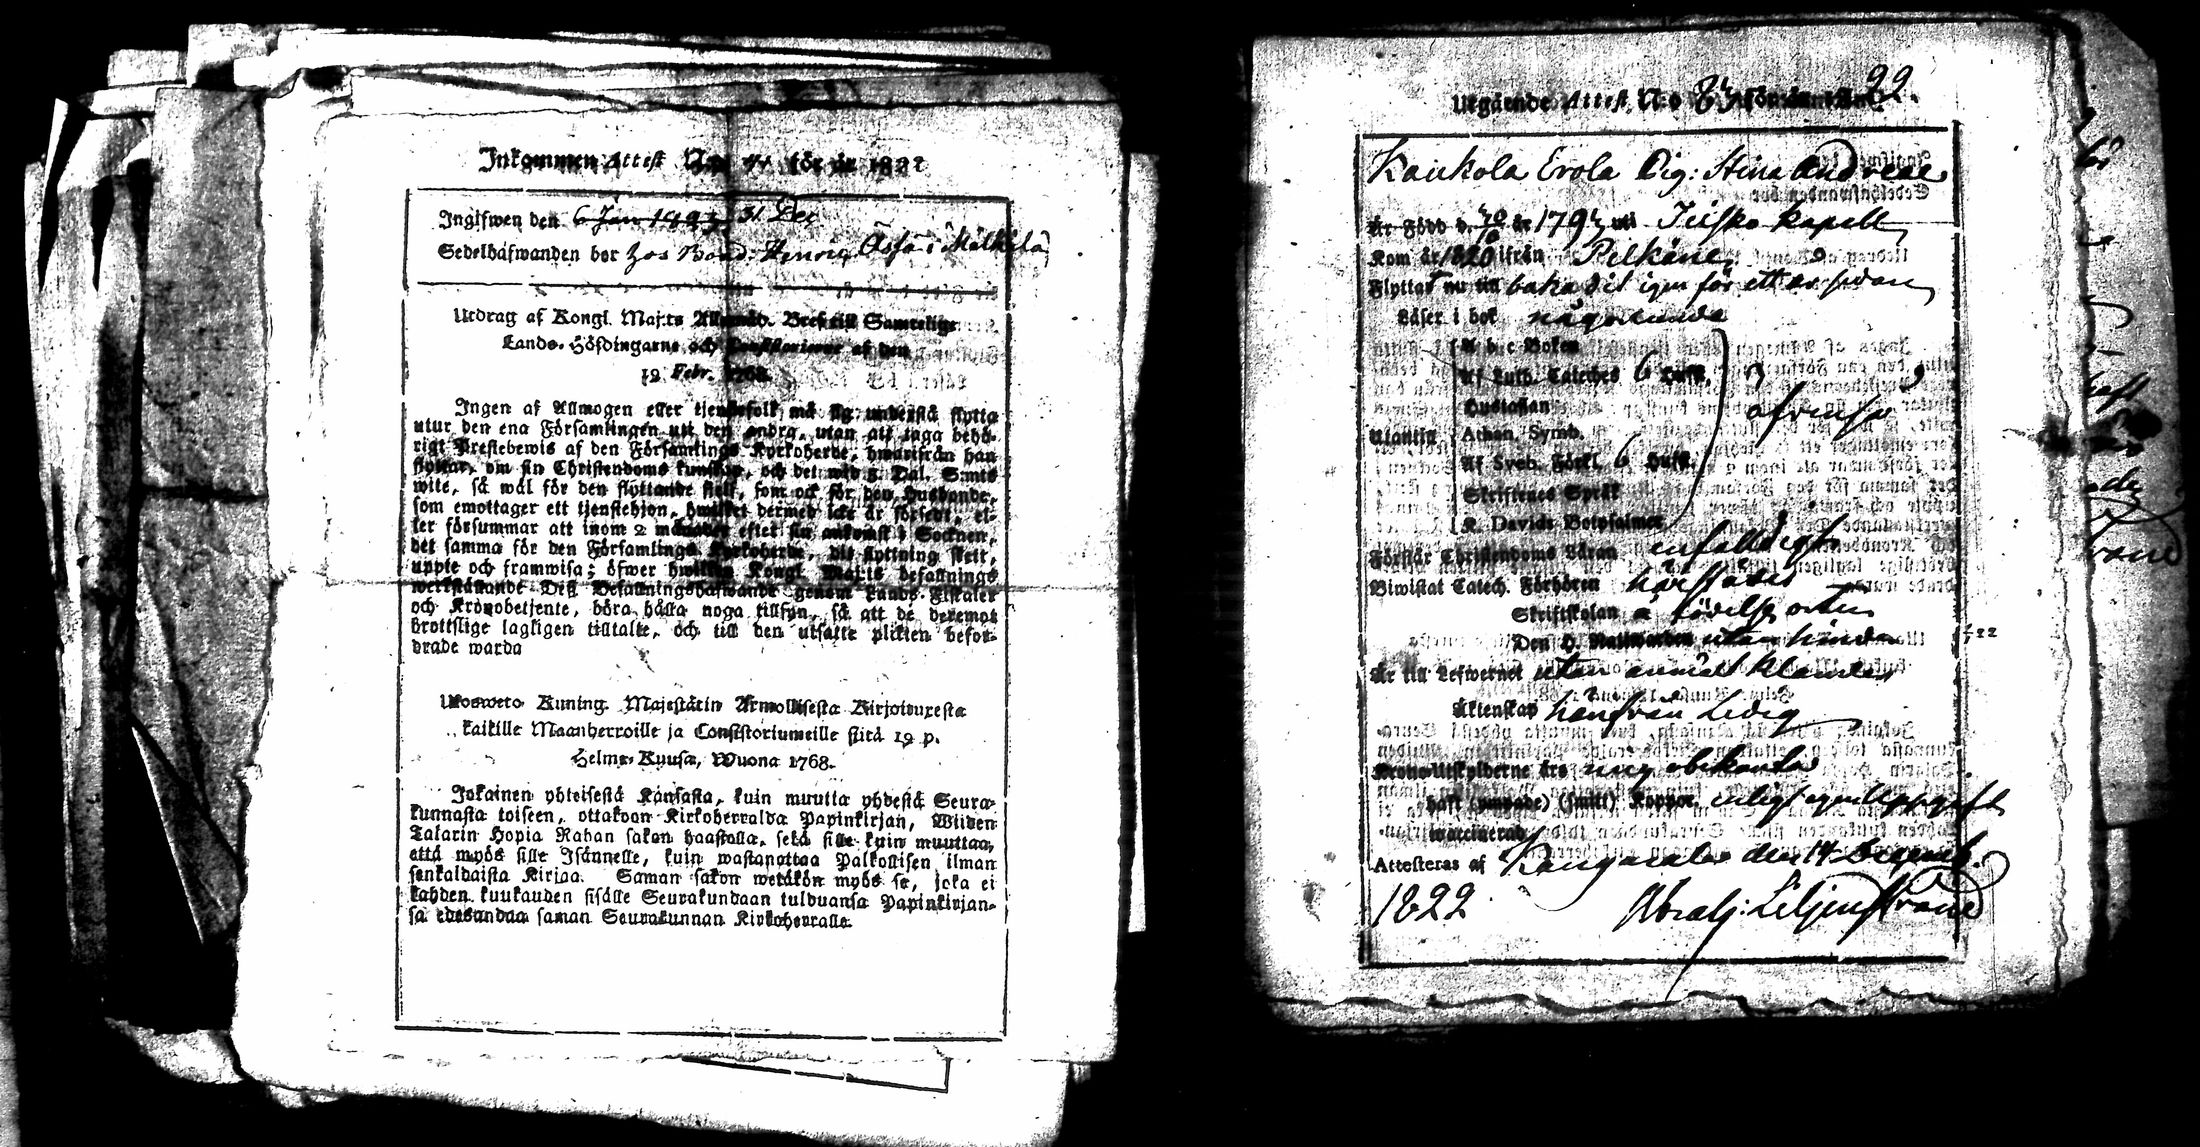 Inkommen Attest N:o för år 1822
Ingifwen den 6 Jan 1823 31 Dec
Sedelhafwanden bor hos Bond. Henric i Mälkilä
Utdrag af Kongl. Maj:ts Allernåd. Bref till Samtelige
Lands-Höfdingarne och Consistorierne af den
19 Febr. 1768.
Ingen af Allmogen eller tjenstefolk må sig understå flytta
utur den ena Församlingen uti den andra, utan att taga behö-
rigt Prestebewis af den Församlings Kyrkoherde, hwarifrån han
flyttar, om sin Christendoms kunskap, och det wid 5 Dal. S:mts
wite, så wäl för den flyttande sielf, som ock för den Husbonde,
som emottager ett tjenstehjon, hwilket dermed icke är försedt, el-
ler försummar att inom 2 månader efter sin ankomst i Socknen,
det samma för den Församlings Kyrkoherde, dit flyttning skett,
uppte och framwisa; öfwer hwilken Kongl. Maj:ts befallnings
werkställande Dess Befallningshafwande genom Lands-Fiskaler
och Kronobetjente, böra hålla noga tillsyn, så att de deremot
brottslige lagligen tilltalte, och till den utsatte plikten befor-
drade warda
Ulosweto Kuning. Majestätin Armollisesta Kirjoituxesta
kaikille Maanherroille ja Consistoriumeille siitä 19 p.
Helme-Kuusa, Wuona 1768.
Jokainen yhteisestä Kansasta, kuin muutta yhdestä Seura-
kunnasta toiseen, ottakoon Kirkoherralda Papinkirjan, Wiiden
Talarin Hopia Rahan sakon haastolla, sekä sille kuin muuttaa,
että myös sille Isännelle, kuin wastanottaa Palkollisen ilman
senkaldaista Kirjaa. Saman sakon wetäkön myös se, joka ei
kahden kuukauden sisälle Seurakundaan tulduansa Papinkirjan-
sa edesandaa saman Seurakunnan Kirkoherralle.
Utgående Attest N:o 84 för år 1822.
Kaukola Erola Pig: Stina Andreae
Är Född d. 20/10 år 1797 uti Kapell
Kom år 1820 ifrån Pelkäne
Flyttar nu till baka dit igen för ett år sedan
Läser i bok någorlunda
A b c Boken
Af Luth. Cateches 6 Huff.
Hustaflan
Utantill Athan. Symb.
Af Sveb. Förkl. 6 Huff.
Skriftenes Språk
K. Davids Botpsalmer
Förstår Christendoms Läran enfaldigt
Biwistat Catech. Förhören
Skriftskolan å födelse orten
Den H. Nattwarden utan hinder
Är till Lefwernet utan anmält klander
Äktenskap härifrån Ledig
Kronoutskylderne äro mig obekanta
haft (ympade) (smitt) Koppor, enligt egen uppgift
waccinerad
Attesteras af Kangasala den 14 Decemb.
1822 Abrah: Liljenstrand